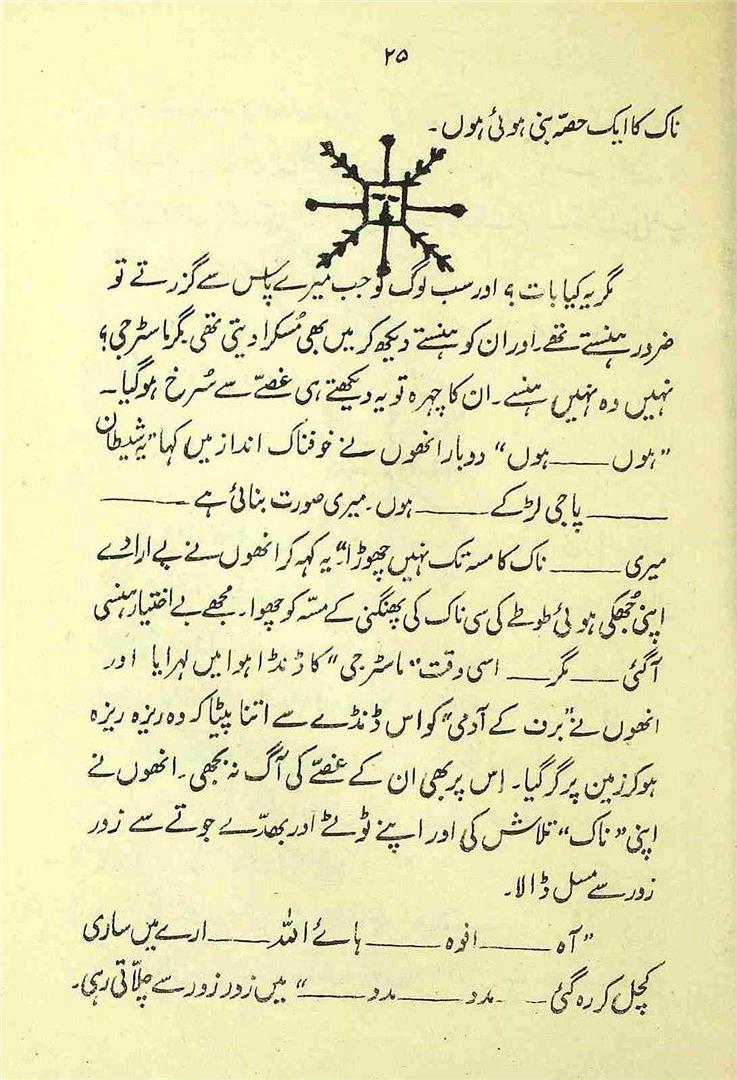 ۲۵
ناک کا ایک حصہ بنی ہوئی ہوں۔
مگر یہ کیا بات؟ اور سب لوگ تو جب میرے پاس سے گزرتے تو
ضرور ہنستے تھے۔ اور ان کو ہنستے دیکھ کر میں بھی مُسکرا دیتی تھی مگر ماسٹر جی؟
نہیں وہ نہیں ہنسے۔ ان کا چہرہ تو یہ دیکھتے ہی غصّے سے سُرخ ہو گیا۔
"ہوں ——— ہوں" دوبار انھوں نے خوفناک انداز میں کہا "یہ شیطان
——— پاجی لڑکے ——— ہوں۔ میری صورت بنائی ہے ———
میری ——— ناک کا مسہ تک نہیں چھوڑا"۔ یہ کہہ کر انھوں نے بے ارادے
اپنی جُھکی ہوئی طوطے کی سی ناک کی پھنگنی کے مسّہ کو چھوا۔ مجھے بے اختیار ہنسی
آگئی ——— مگر ——— اسی وقت "ماسٹر جی" کا ڈنڈا ہوا میں لہرایا اور
انھوں نے "برف کے آدمی" کو اس ڈنڈے سے اتنا پیٹا کہ وہ ریزہ ریزہ
ہو کر زمین پر گر گیا۔ اس پر بھی ان کے غصّے کی آگ نہ بجھی۔ انھوں نے
اپنی "ناک" تلاش کی اور اپنے ٹوٹے اور بھدّے جوتے سے زور
زور سے مسل ڈالا۔
"آہ ——— افوہ ——— ہائے اللہ ——— ارے میں ساری
کچل کر رہ گئی ——— مدد ——— مدد ———" میں زور زور سے چلّاتی رہی۔